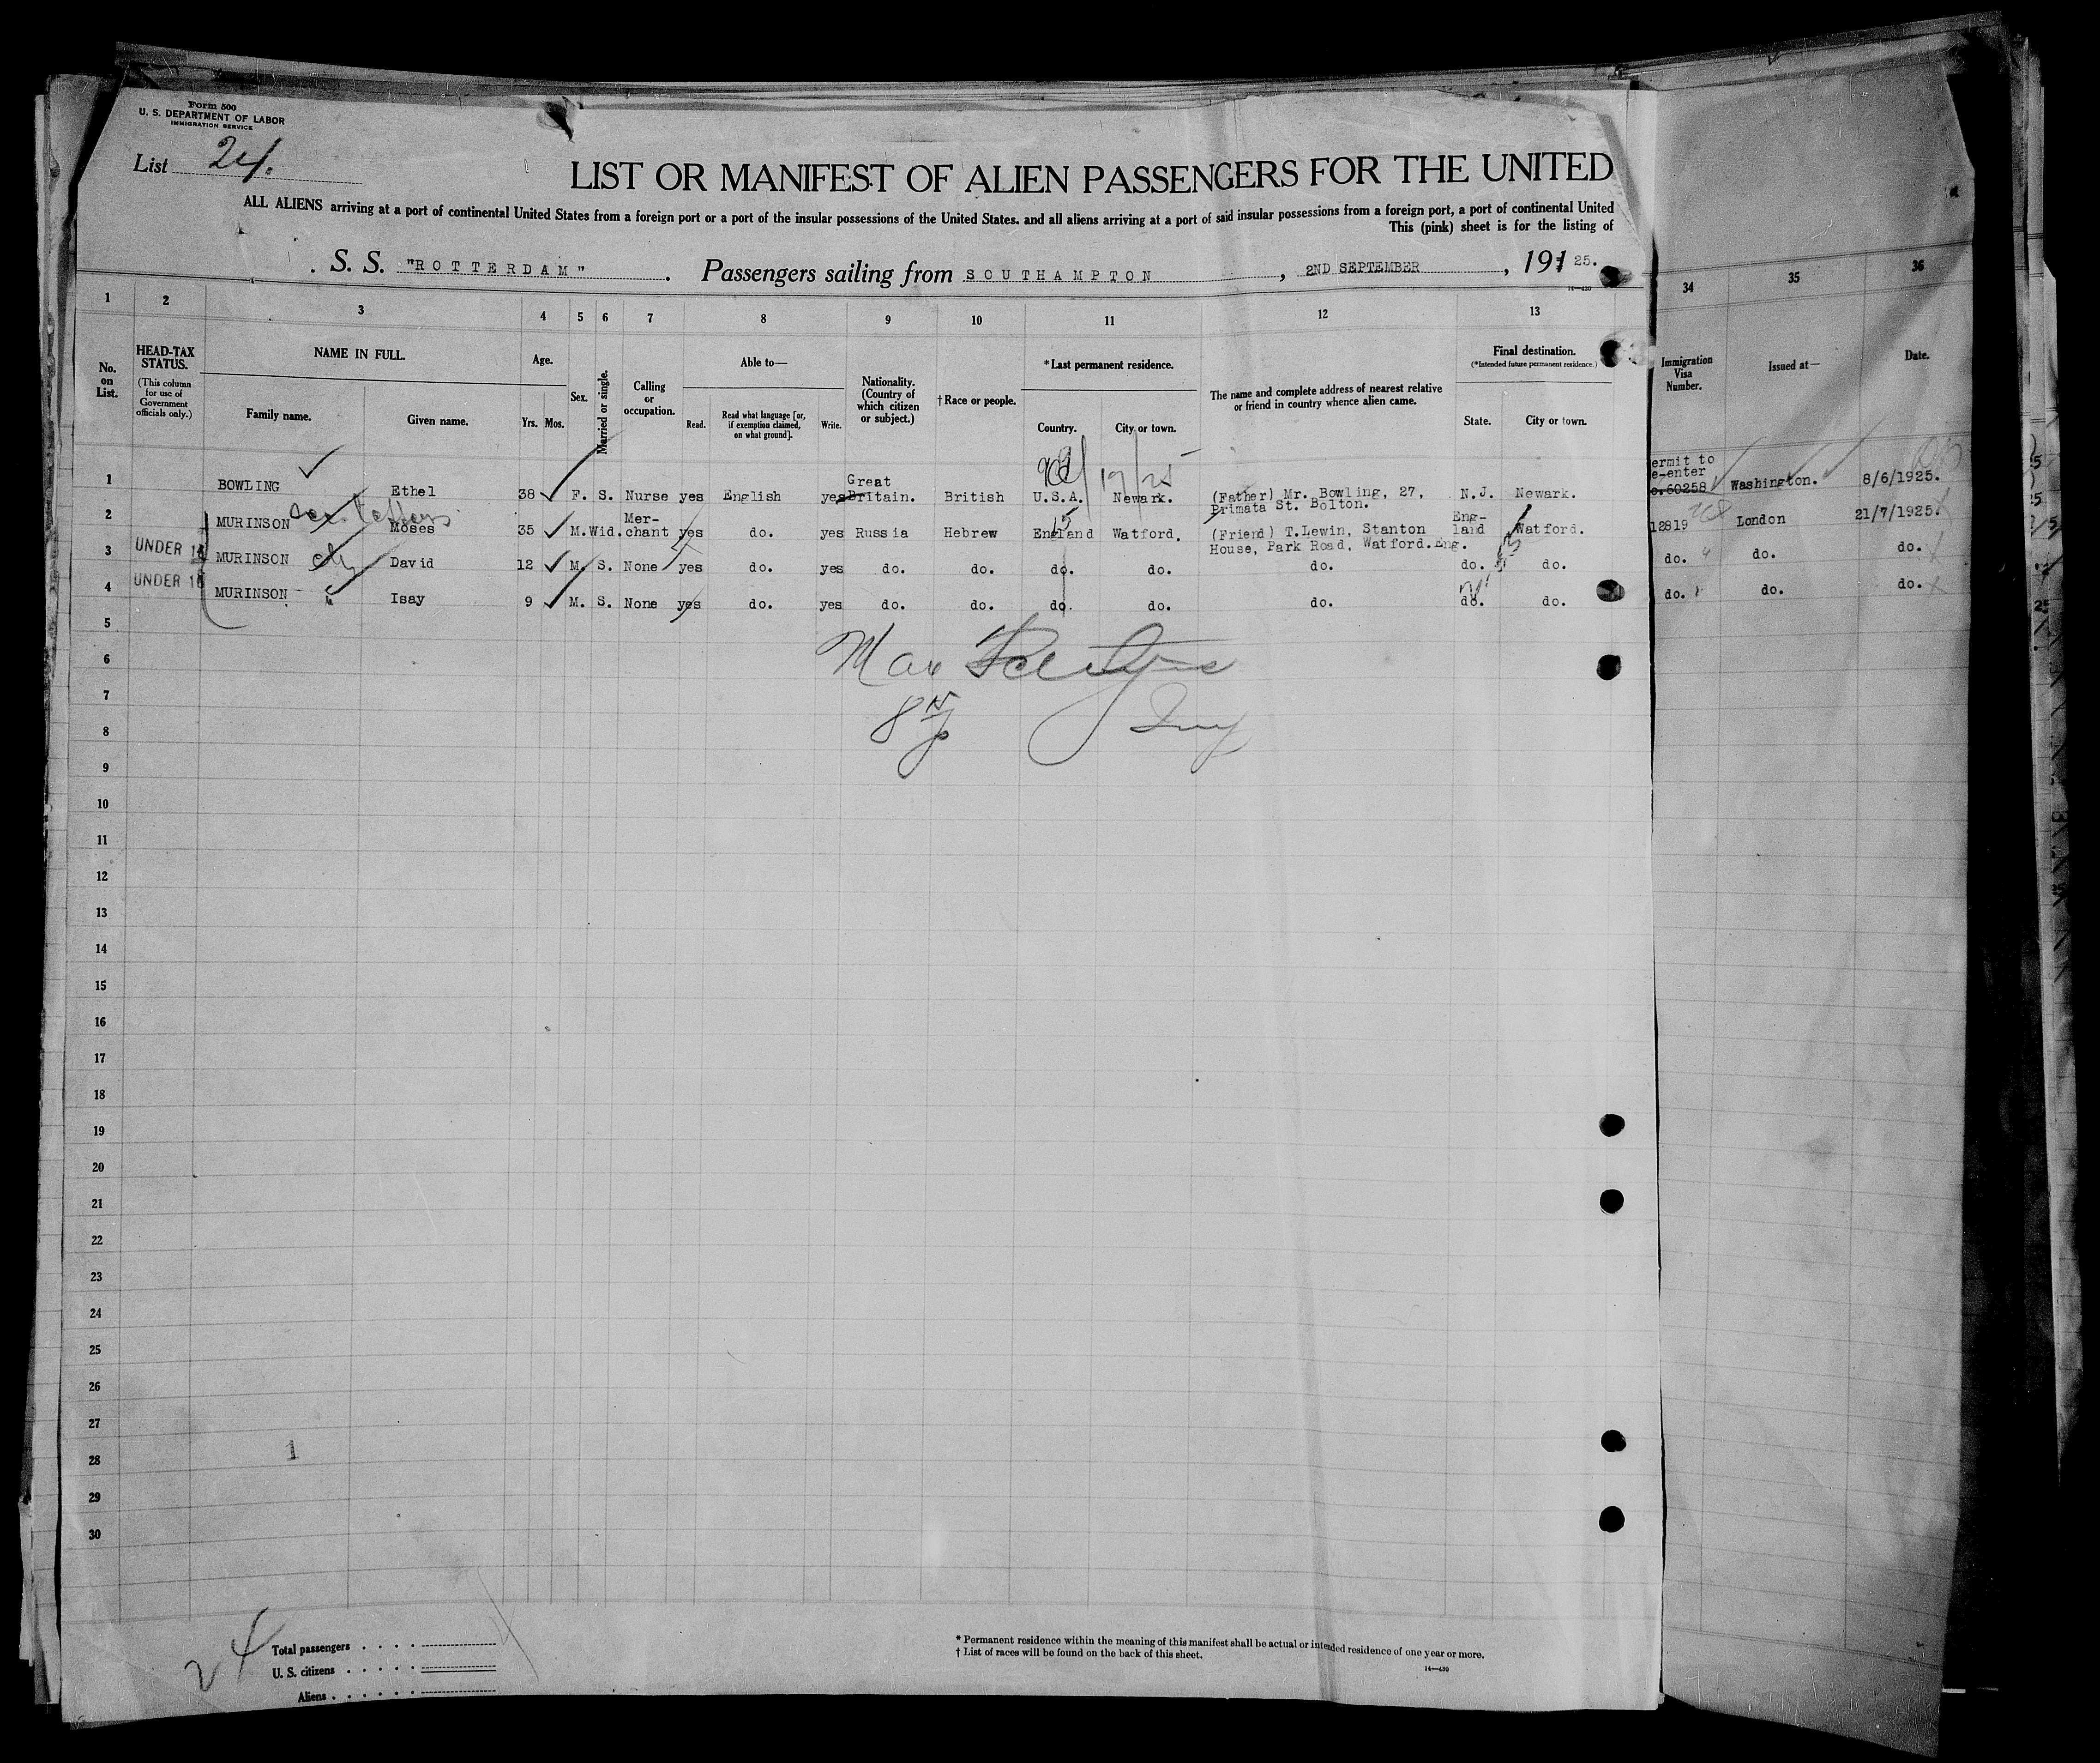 Form 500
U. S. DEPARTMENT OF LABOR
IMMIGRATION SERVICE
List 24.
LIST OR MANIFEST OF ALIEN PASSENGERS FOR THE UNITED
ALL ALIENS arriving at a port of continental United States from a foreign port or a port of the insular possessions of the United States, and all aliens arriving at a port of said insular possessions from a foreign port, a port of continental United
This (pink) sheet is for the listing of
S. S. "ROTTERDAM" . Passengers sailing from SOUTHAMPTON , 2ND SEPTEMBER , 191 25.
1 2 3 4 5 6 7 8 9 10 11 12 13 34 35 36
No. on List.
HEAD-TAX STATUS.
(This column for use of Government officials only.)
NAME IN FULL.
Family name. Given name.
Age.
Yrs. Mos.
Sex.
Married or single.
Calling or occupation.
Able to—
Read. Read what language [or, if exemption claimed, on what ground]. Write.
Nationality. (Country of which citizen or subject.)
†Race or people.
*Last permanent residence.
Country. City or town.
The name and complete address of nearest relative or friend in country whence alien came.
Final destination.
(*Intended future permanent residence.)
State. City or town.
Immigration Visa Number.
Issued at—
Date.
1 BOWLING Ethel 38 F. S. Nurse yes English yes Great Britain. British U.S.A. Newark. (Father) Mr. Bowling, 27, Primata St. Bolton. N.J. Newark. ermit to e-enter o.60258 Washington. 8/6/1925.
2 MURINSON Moses 35 M. Wid. Mer-chant yes do. yes Russia Hebrew England Watford. (Friend) T.Lewin, Stanton House, Park Road, Watford.Eng. Eng-land Watford. 12819 London 21/7/1925.
3 UNDER 16 MURINSON David 12 M. S. None yes do. yes do. do. do. do. do. do. do. do. do. do.
4 UNDER 16 MURINSON Isay 9 M. S. None yes do. yes do. do. do. do. do. do. do. do. do. do.
5
6 Max
7
8
9
10
11
12
13
14
15
16
17
18
19
20
21
22
23
24
25
26
27
28
29
30
1
24
Total passengers
U. S. citizens
Aliens
* Permanent residence within the meaning of this manifest shall be actual or intended residence of one year or more.
† List of races will be found on the back of this sheet.
14—430